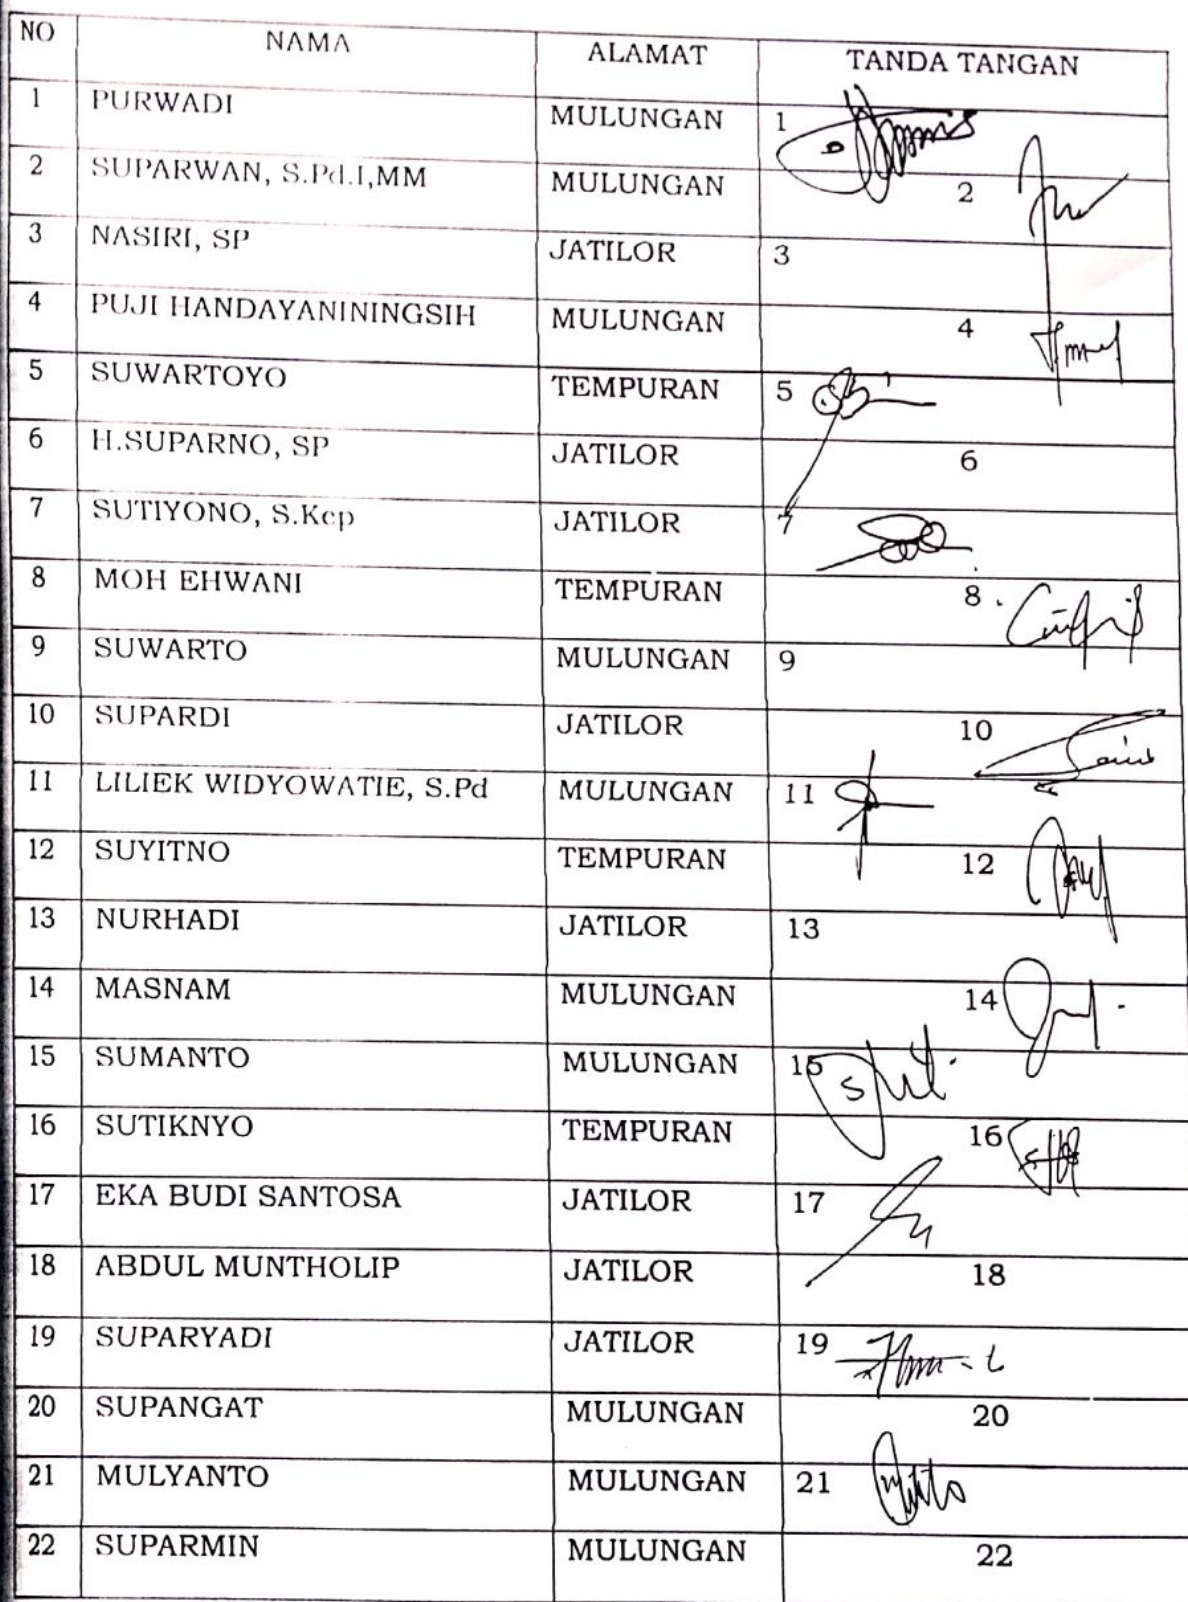 NO NAMA ALAMAT TANDA TANGAN
1 PURWADI MULUNGAN 1
2 SUPARWAN, S.Pd.I,MM MULUNGAN 2
3 NASIRI, SP JATILOR 3
4 PUJI HANDAYANININGSIH MULUNGAN 4
5 SUWARTOYO TEMPURAN 5
6 H.SUPARNO, SP JATILOR 6
7 SUTIYONO, S.Kep JATILOR 7
8 MOH EHWANI TEMPURAN 8
9 SUWARTO MULUNGAN 9
10 SUPARDI JATILOR 10
11 LILIEK WIDYOWATIE, S.Pd MULUNGAN 11
12 SUYITNO TEMPURAN 12
13 NURHADI JATILOR 13
14 MASNAM MULUNGAN 14
15 SUMANTO MULUNGAN 15
16 SUTIKNYO TEMPURAN 16
17 EKA BUDI SANTOSA JATILOR 17
18 ABDUL MUNTHOLIP JATILOR 18
19 SUPARYADI JATILOR 19
20 SUPANGAT MULUNGAN 20
21 MULYANTO MULUNGAN 21
22 SUPARMIN MULUNGAN 22